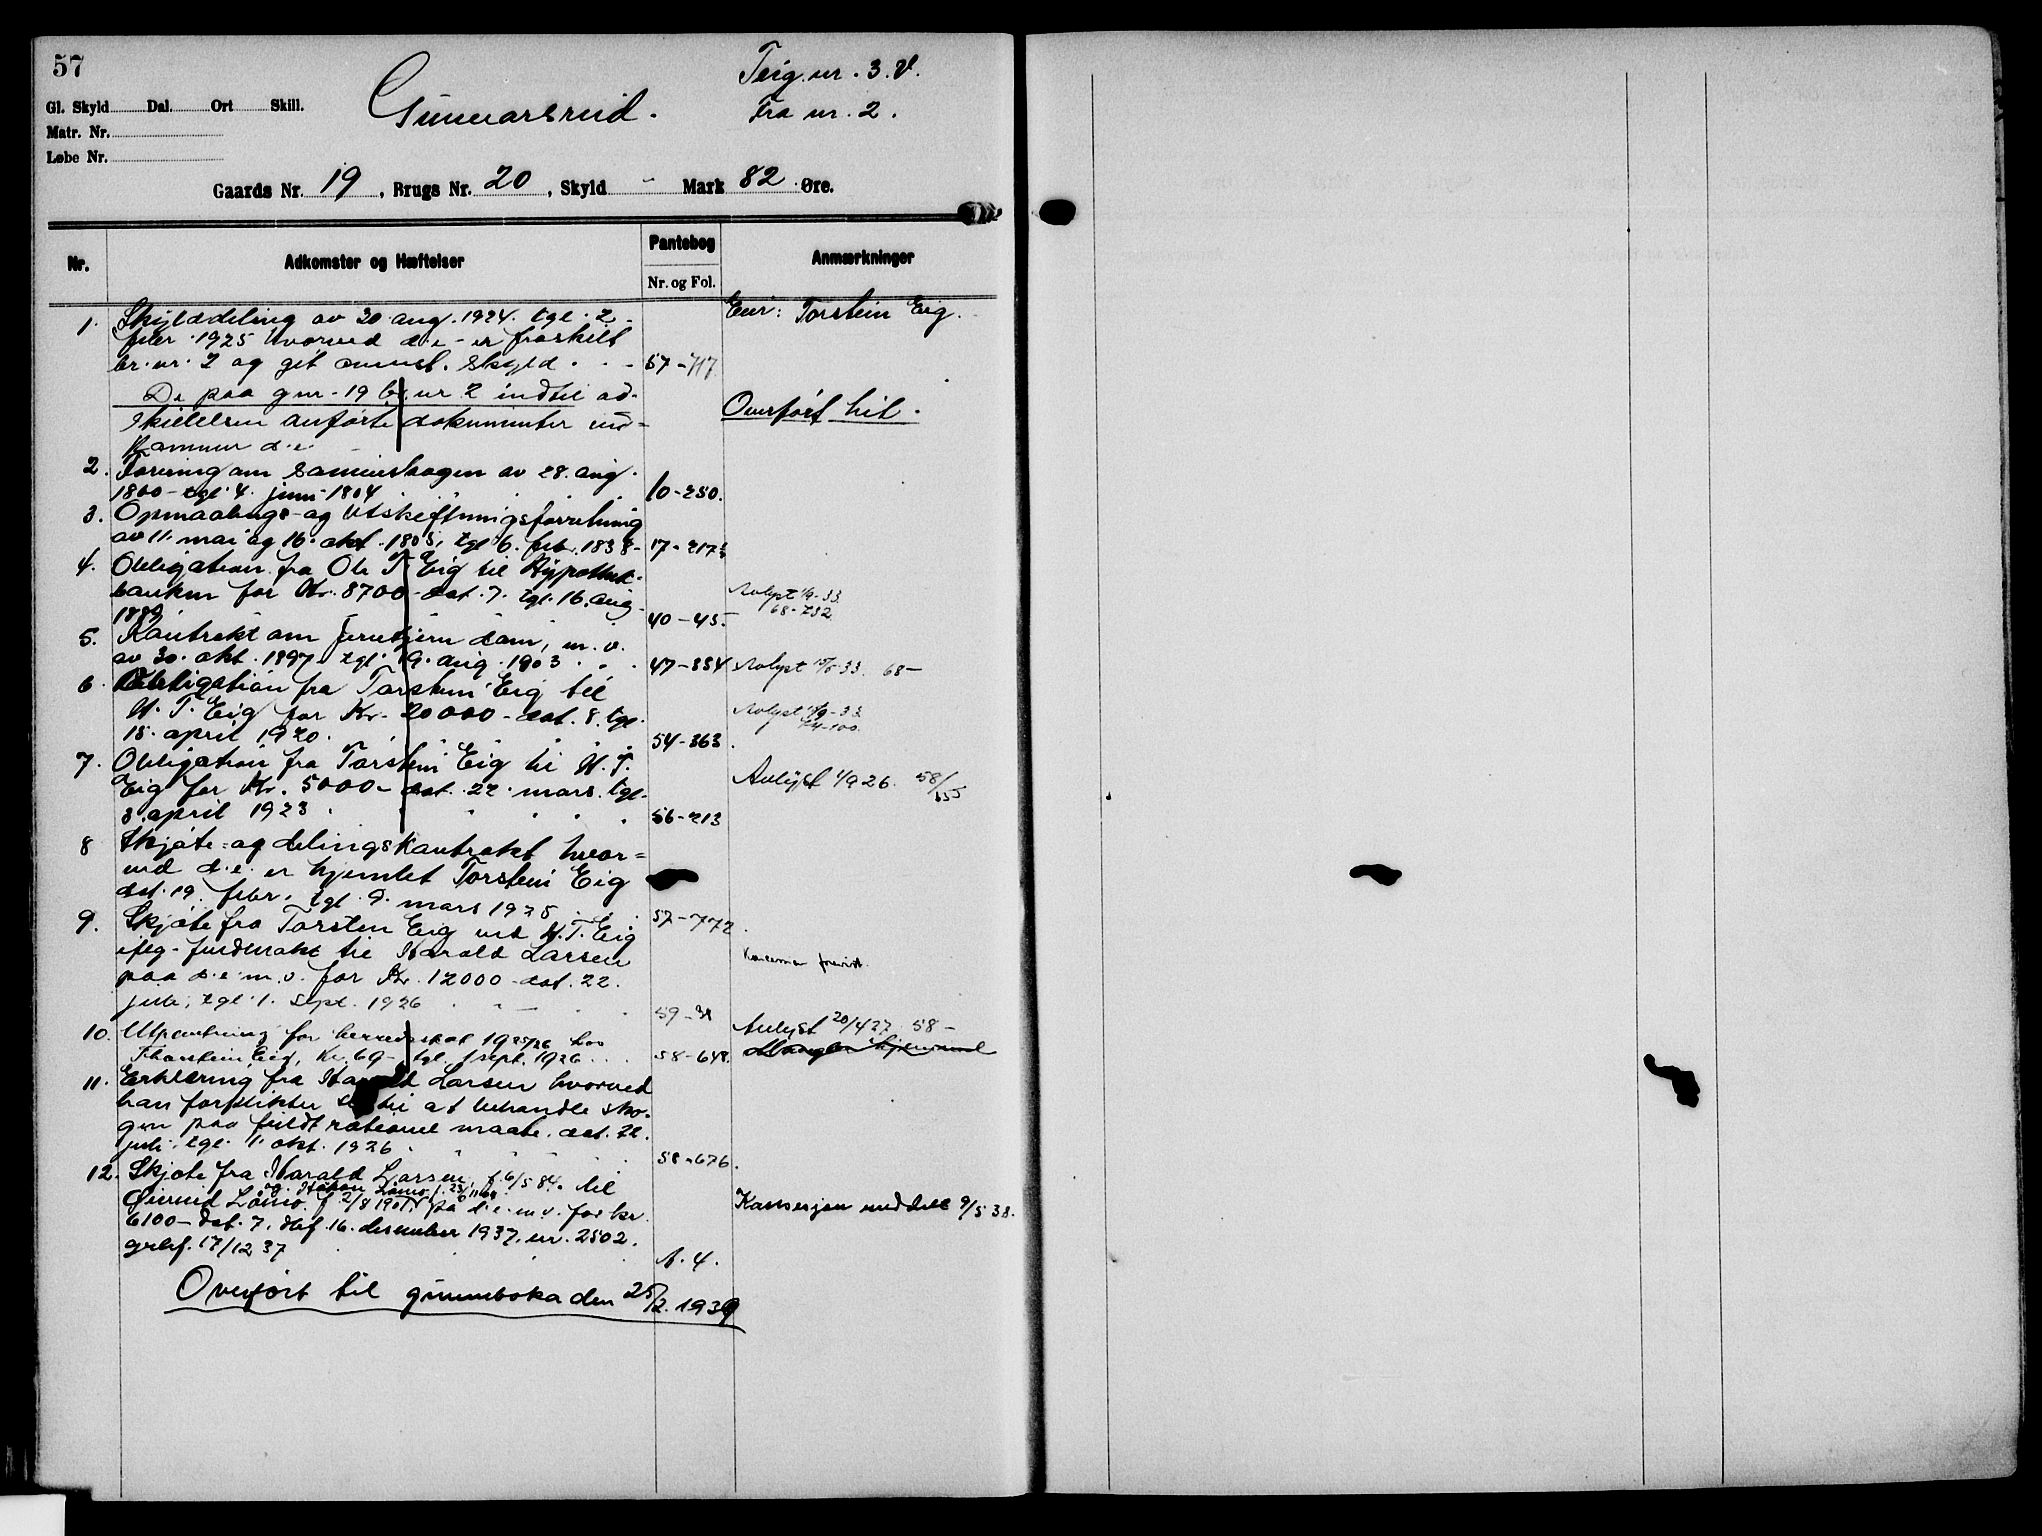 57
Teig. nr. 3. V.
Gl. Skyld Dal. Ort Skill. Gunnarsrud. Fra nr. 2.
Matr. Nr.
Løbe Nr.
Gaards Nr. 19, Brugs Nr. 20, Skyld - Mark 82 Øre.
Nr. Adkomster og Hæftelser Pantebog Anmærkninger
Nr. og Fol.
1. Skylddeling av 30 aug. 1924. tgl. 2. Eier: Torstein Eig.
febr. 1925 hvorved d.e. er fraskilt
br. nr. 2 og git ommst. skyld. 57-717.
De paa gnr. 19 br. nr. 2 indtil ad- Overført hit.
skillelsen anførte dokumenter ved-
kommer d.e.
2. Forening om Sameieskogen av 28. aug.
1800 - tgl. 4. juni 1804 10-250.
3. Opmaalings- og Utskiftningsforretning
av 11. mai og 16. okt. 1805, tgl. 6. febr. 1838- 17-217
4. Obligation fra Ole T. Eig til Hypothek-
banken for Kr. 8700- dat. 7. tgl. 16. aug. Avlyst 1/9-33.
1889 40-45. 68-732
5. Kontrakt om Jerntjern dam, m.v.
av 30. okt. 1897. tgl. 19. aug. 1903. 47-334 Avlyst 33. 68-
6. Obligation fra Torstein Eig til
H. T. Eig for Kr. 20000- dat. 8. tgl. Avlyst 33.
15. april 1920. 54-363. 44-100.
7. Obligation fra Torstein Eig til H. T.
Eig for Kr. 5000- dat. 22. mars. tgl. Avlyst 1/9 26. 58/655
3. april 1923. 56-213
8 Skjøte- og delingskontrakt hvor-
ved d.e. er hjemlet Torstein Eig
dat. 19. febr. tgl. 9. mars 1925. 57-772.
9. Skjøte fra Torsten Eig ved H. T. Eig
iflg. fuldmakt til Harald Larsen
paa d.e. m.v. for Kr. 12000- dat. 22.
juli, tgl. 1. sept. 1926 59-31
10. Utpantning for herredsskat 1925/26 hos Avlyst 20/4 27. 58-
Thorstein Eig, kr. 69- tgl. 1 sept. 1926 58-648. Mangler hjemmel
11. Erklæring fra Harald Larsen hvorved
han forplikter sig til at behandle sko-
gen paa fuldt rationel maate. dat. 22.
juli. tgl. 1. okt. 1926. 58-676.
12. Skjøte fra Harald Larsen, f. 6/5 84. til
og Håkon Lømo f. 23/11 04
Øivind Lømo f. 2/8 1901 på d.e. m.v. for kr. Konsesjon meddelt 9/5 38.
6100- dat. 7. dbf. 16. desember 1937. nr. 2502.
grbf. 17/12 37 A. 4.
Overført til grunnboka den 25/2. 1939